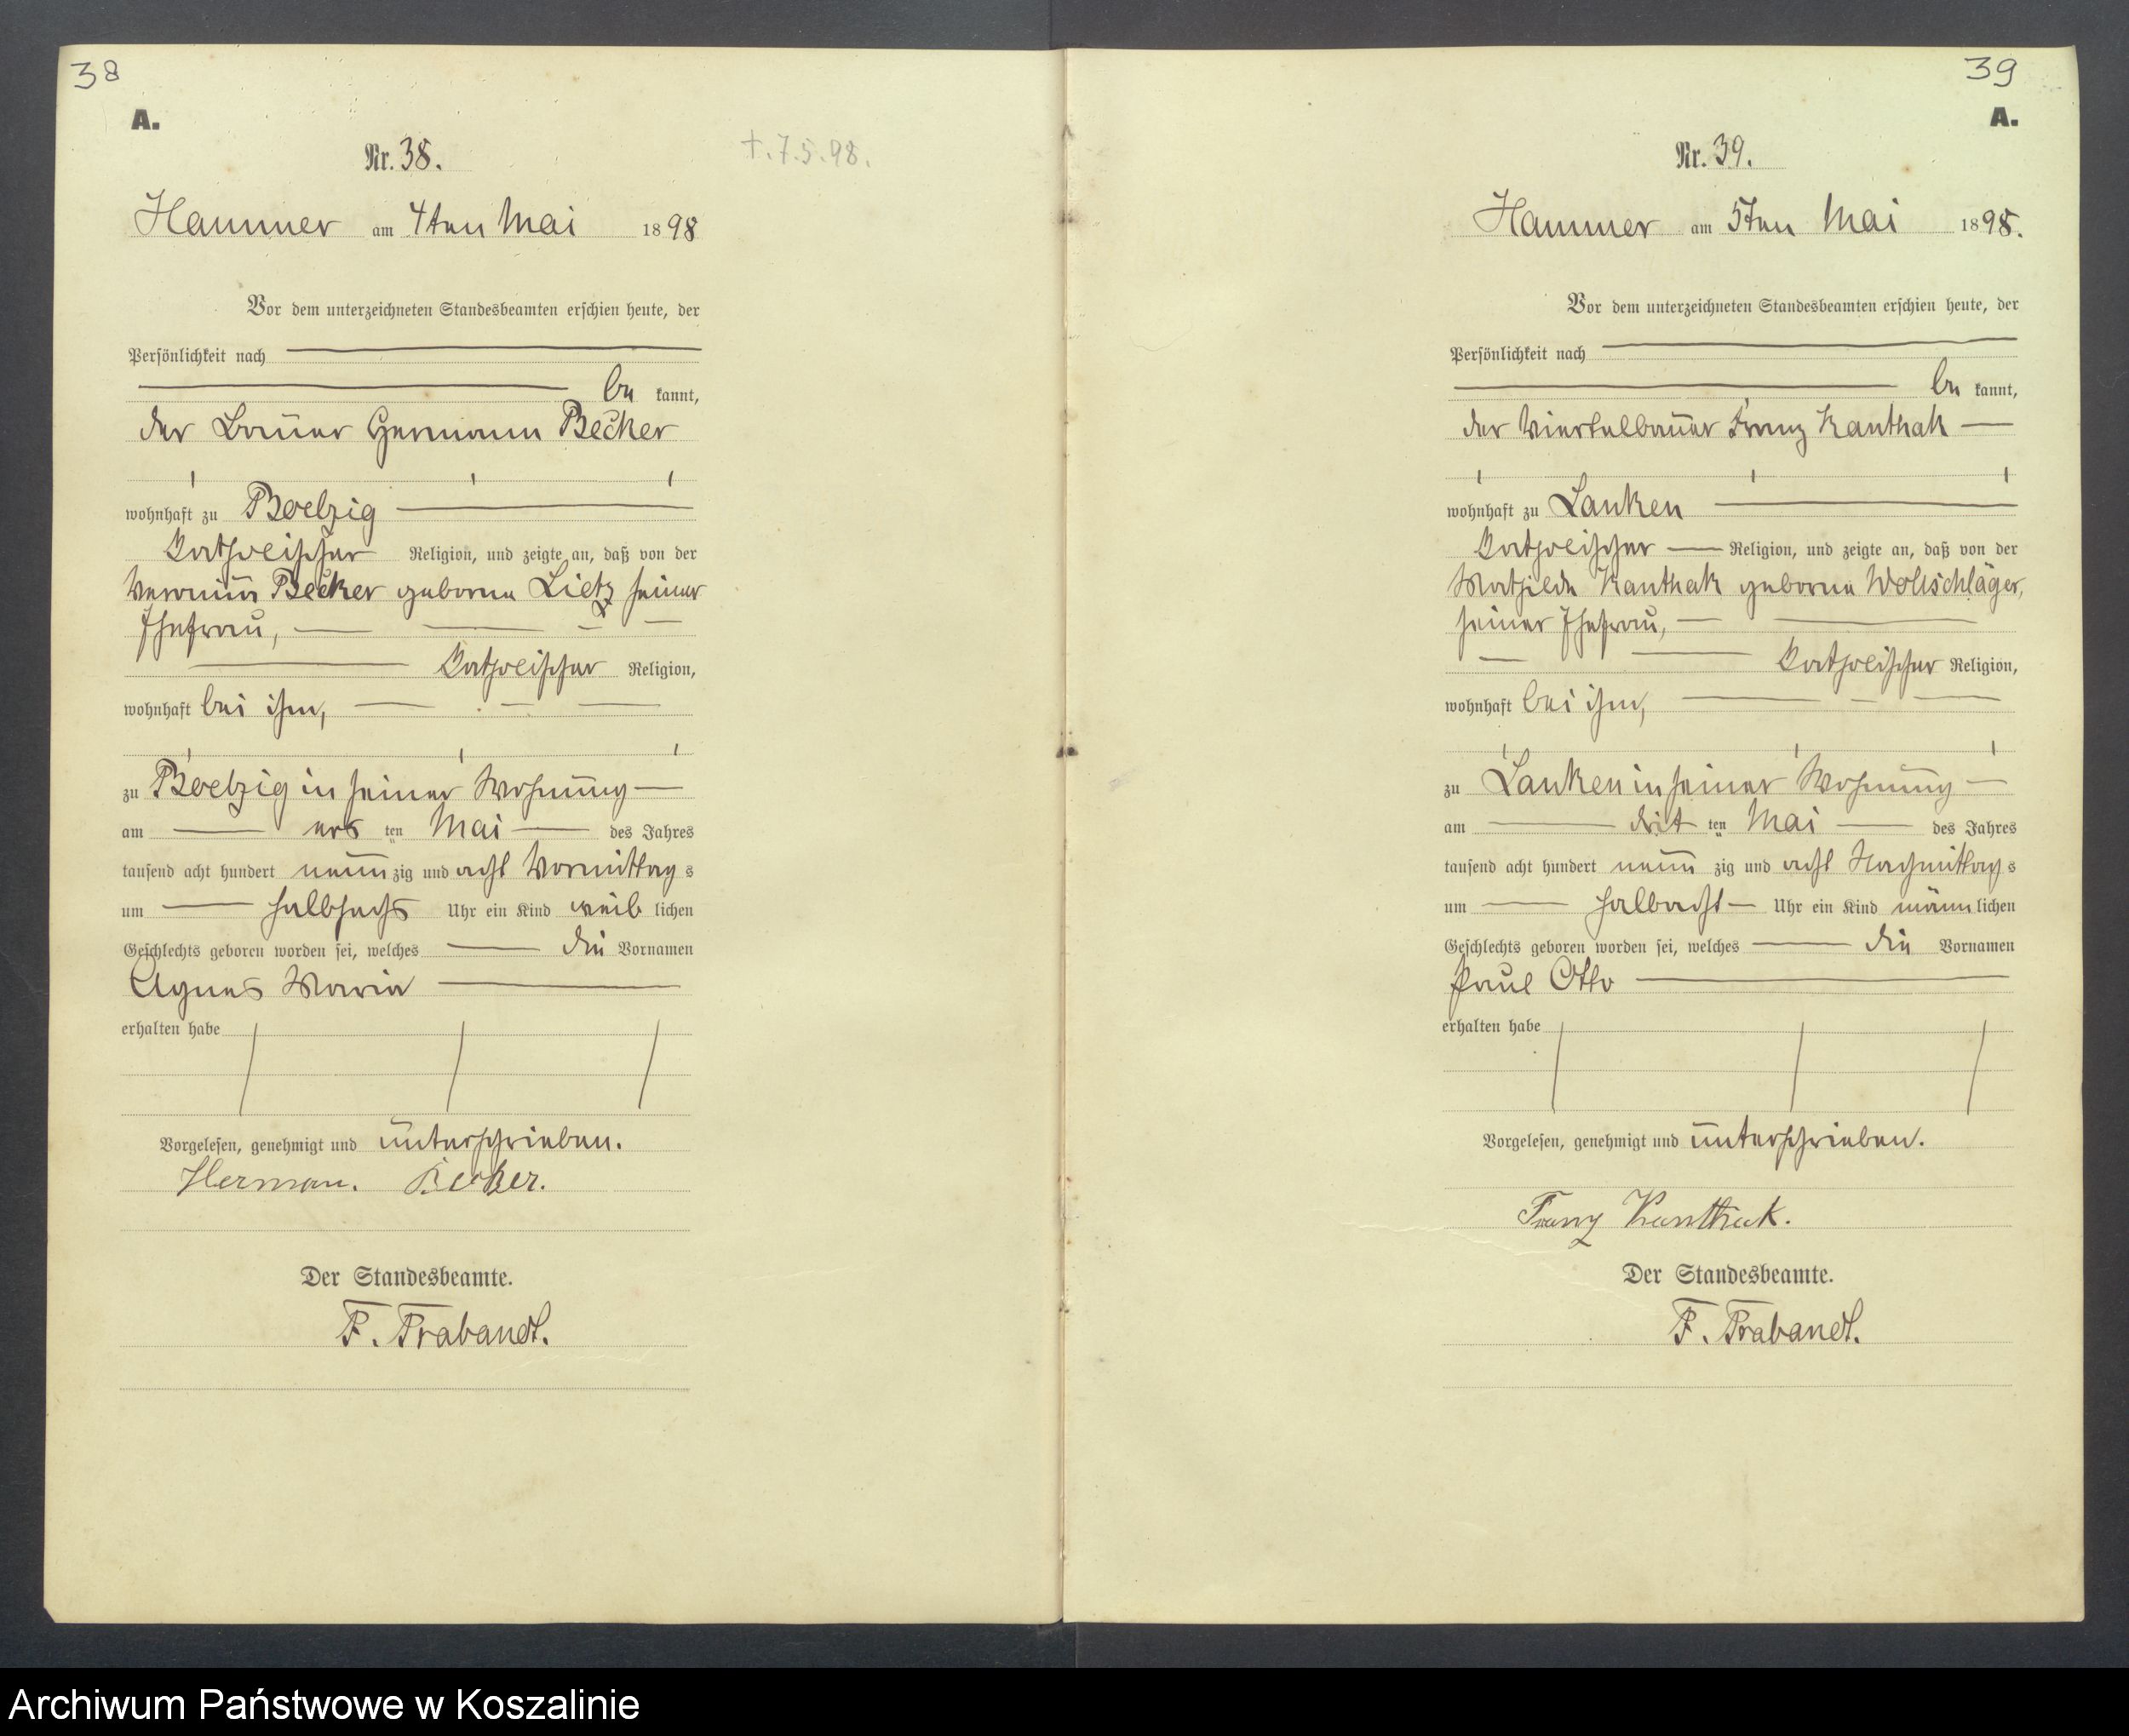 38
A.
Nr. 38.
†. 7. 5. 98.
Hammer am 4ten Mai 1898
Vor dem unterzeichneten Standesbeamten erschien heute, der
Persönlichkeit nach
be kannt,
der Bauer Hermann Becker
wohnhaft zu Boelzig
katholischer Religion, und zeigte an, daß von der
Veronika Becker geborne Lietz seiner
Ehefrau,
katholischer Religion,
wohnhaft bei ihm,
zu Boelzig in seiner Wohnung
am ers ten Mai des Jahres
tausend acht hundert neun zig und acht Vormittag s
um halbsechs Uhr ein Kind weib lichen
Geschlechts geboren worden sei, welches die Vornamen
Agnes Maria
erhalten habe
Vorgelesen, genehmigt und unterschrieben.
Herman. Becker.
Der Standesbeamte.
F. Trabandt.
39
A.
Nr. 39.
Hammer am 5ten Mai 1898.
Vor dem unterzeichneten Standesbeamten erschien heute, der
Persönlichkeit nach
be kannt,
der Viertelbauer Franz Kanthak
wohnhaft zu Lanken
katholischer Religion, und zeigte an, daß von der
Mathilde Kanthak geborne Wollschläger,
seiner Ehefrau,
katholischer Religion,
wohnhaft bei ihm,
zu Lanken in seiner Wohnung
am drit ten Mai des Jahres
tausend acht hundert neun zig und acht Nachmittag s
um halbacht Uhr ein Kind männ lichen
Geschlechts geboren worden sei, welches die Vornamen
Paul Otto
erhalten habe
Vorgelesen, genehmigt und unterschrieben.
Franz Kanthak.
Der Standesbeamte.
F. Trabandt.
Archiwum Państwowe w Koszalinie